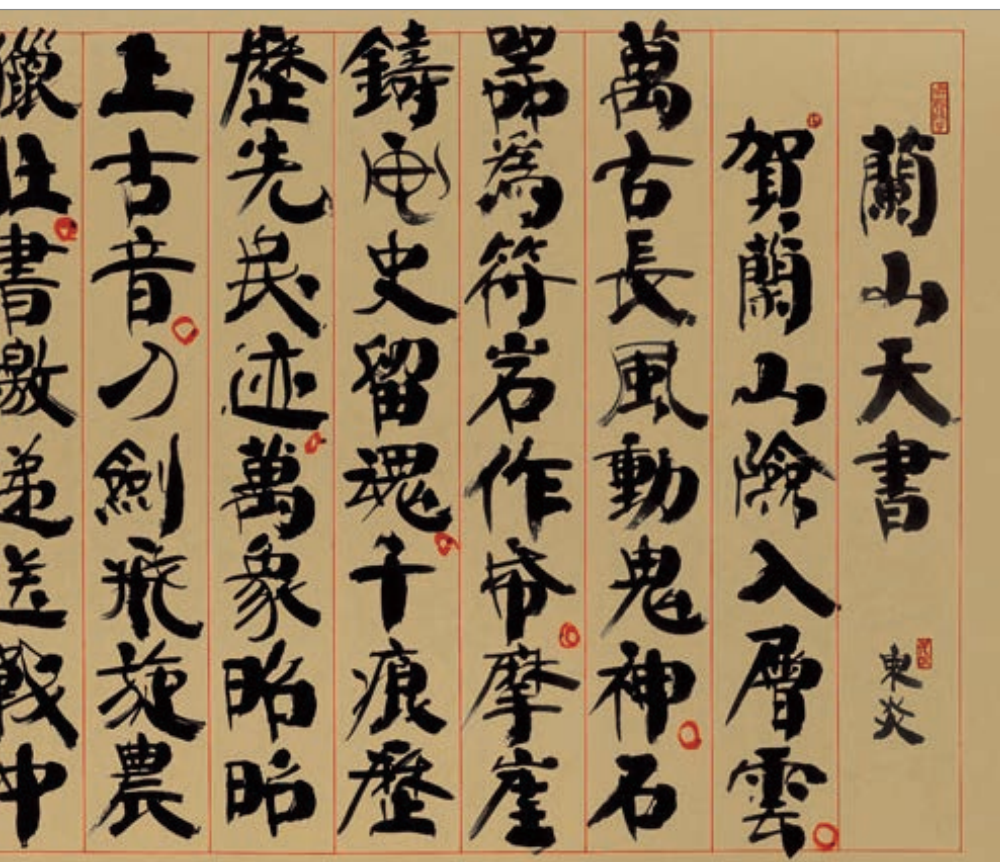 蘭山天書 東炎
賀蘭山險入層雲
萬古長風動鬼神石
器為符岩作帋摩崖
鑄画史留魂千痕歷
歷先民迹萬象昭昭
上古音刀劍飛旋農
獵壯書檄遞送戰中